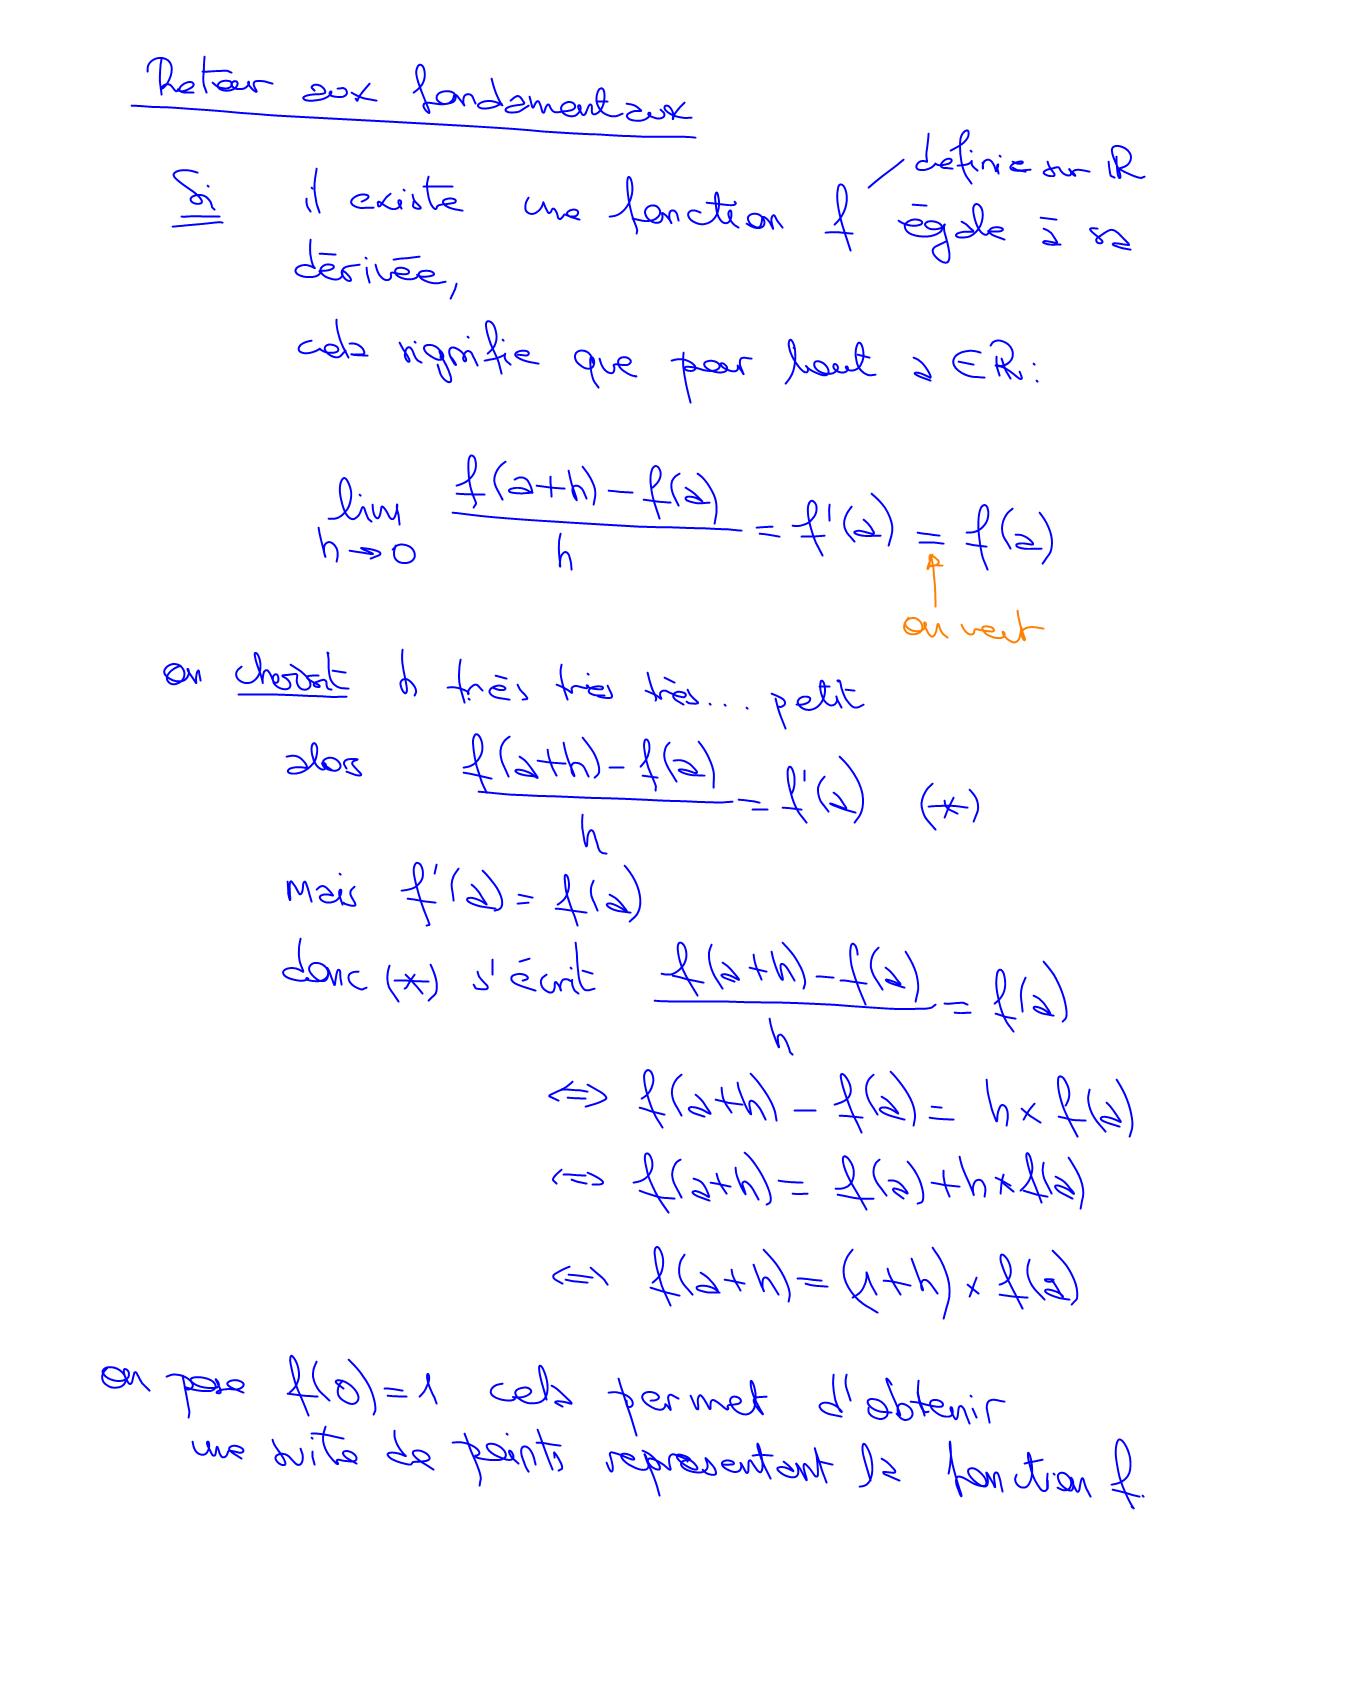 Retour aux fondamentaux
définie sur ℝ
Si il existe une fonction f égale à sa
dérivée,
cela signifie que pour tout a ∈ ℝ :
lim h→0 (f(a+h) - f(a))/h = f'(a) = f(a)
on veut
on choisit h très très très... petit
alors (f(a+h) - f(a))/h = f'(a) (*)
mais f'(a) = f(a)
donc (*) s'écrit (f(a+h) - f(a))/h = f(a)
⇔ f(a+h) - f(a) = h × f(a)
⇔ f(a+h) = f(a) + h × f(a)
⇔ f(a+h) = (1+h) × f(a)
on pose f(0) = 1 cela permet d'obtenir
une suite de points représentant la fonction f.